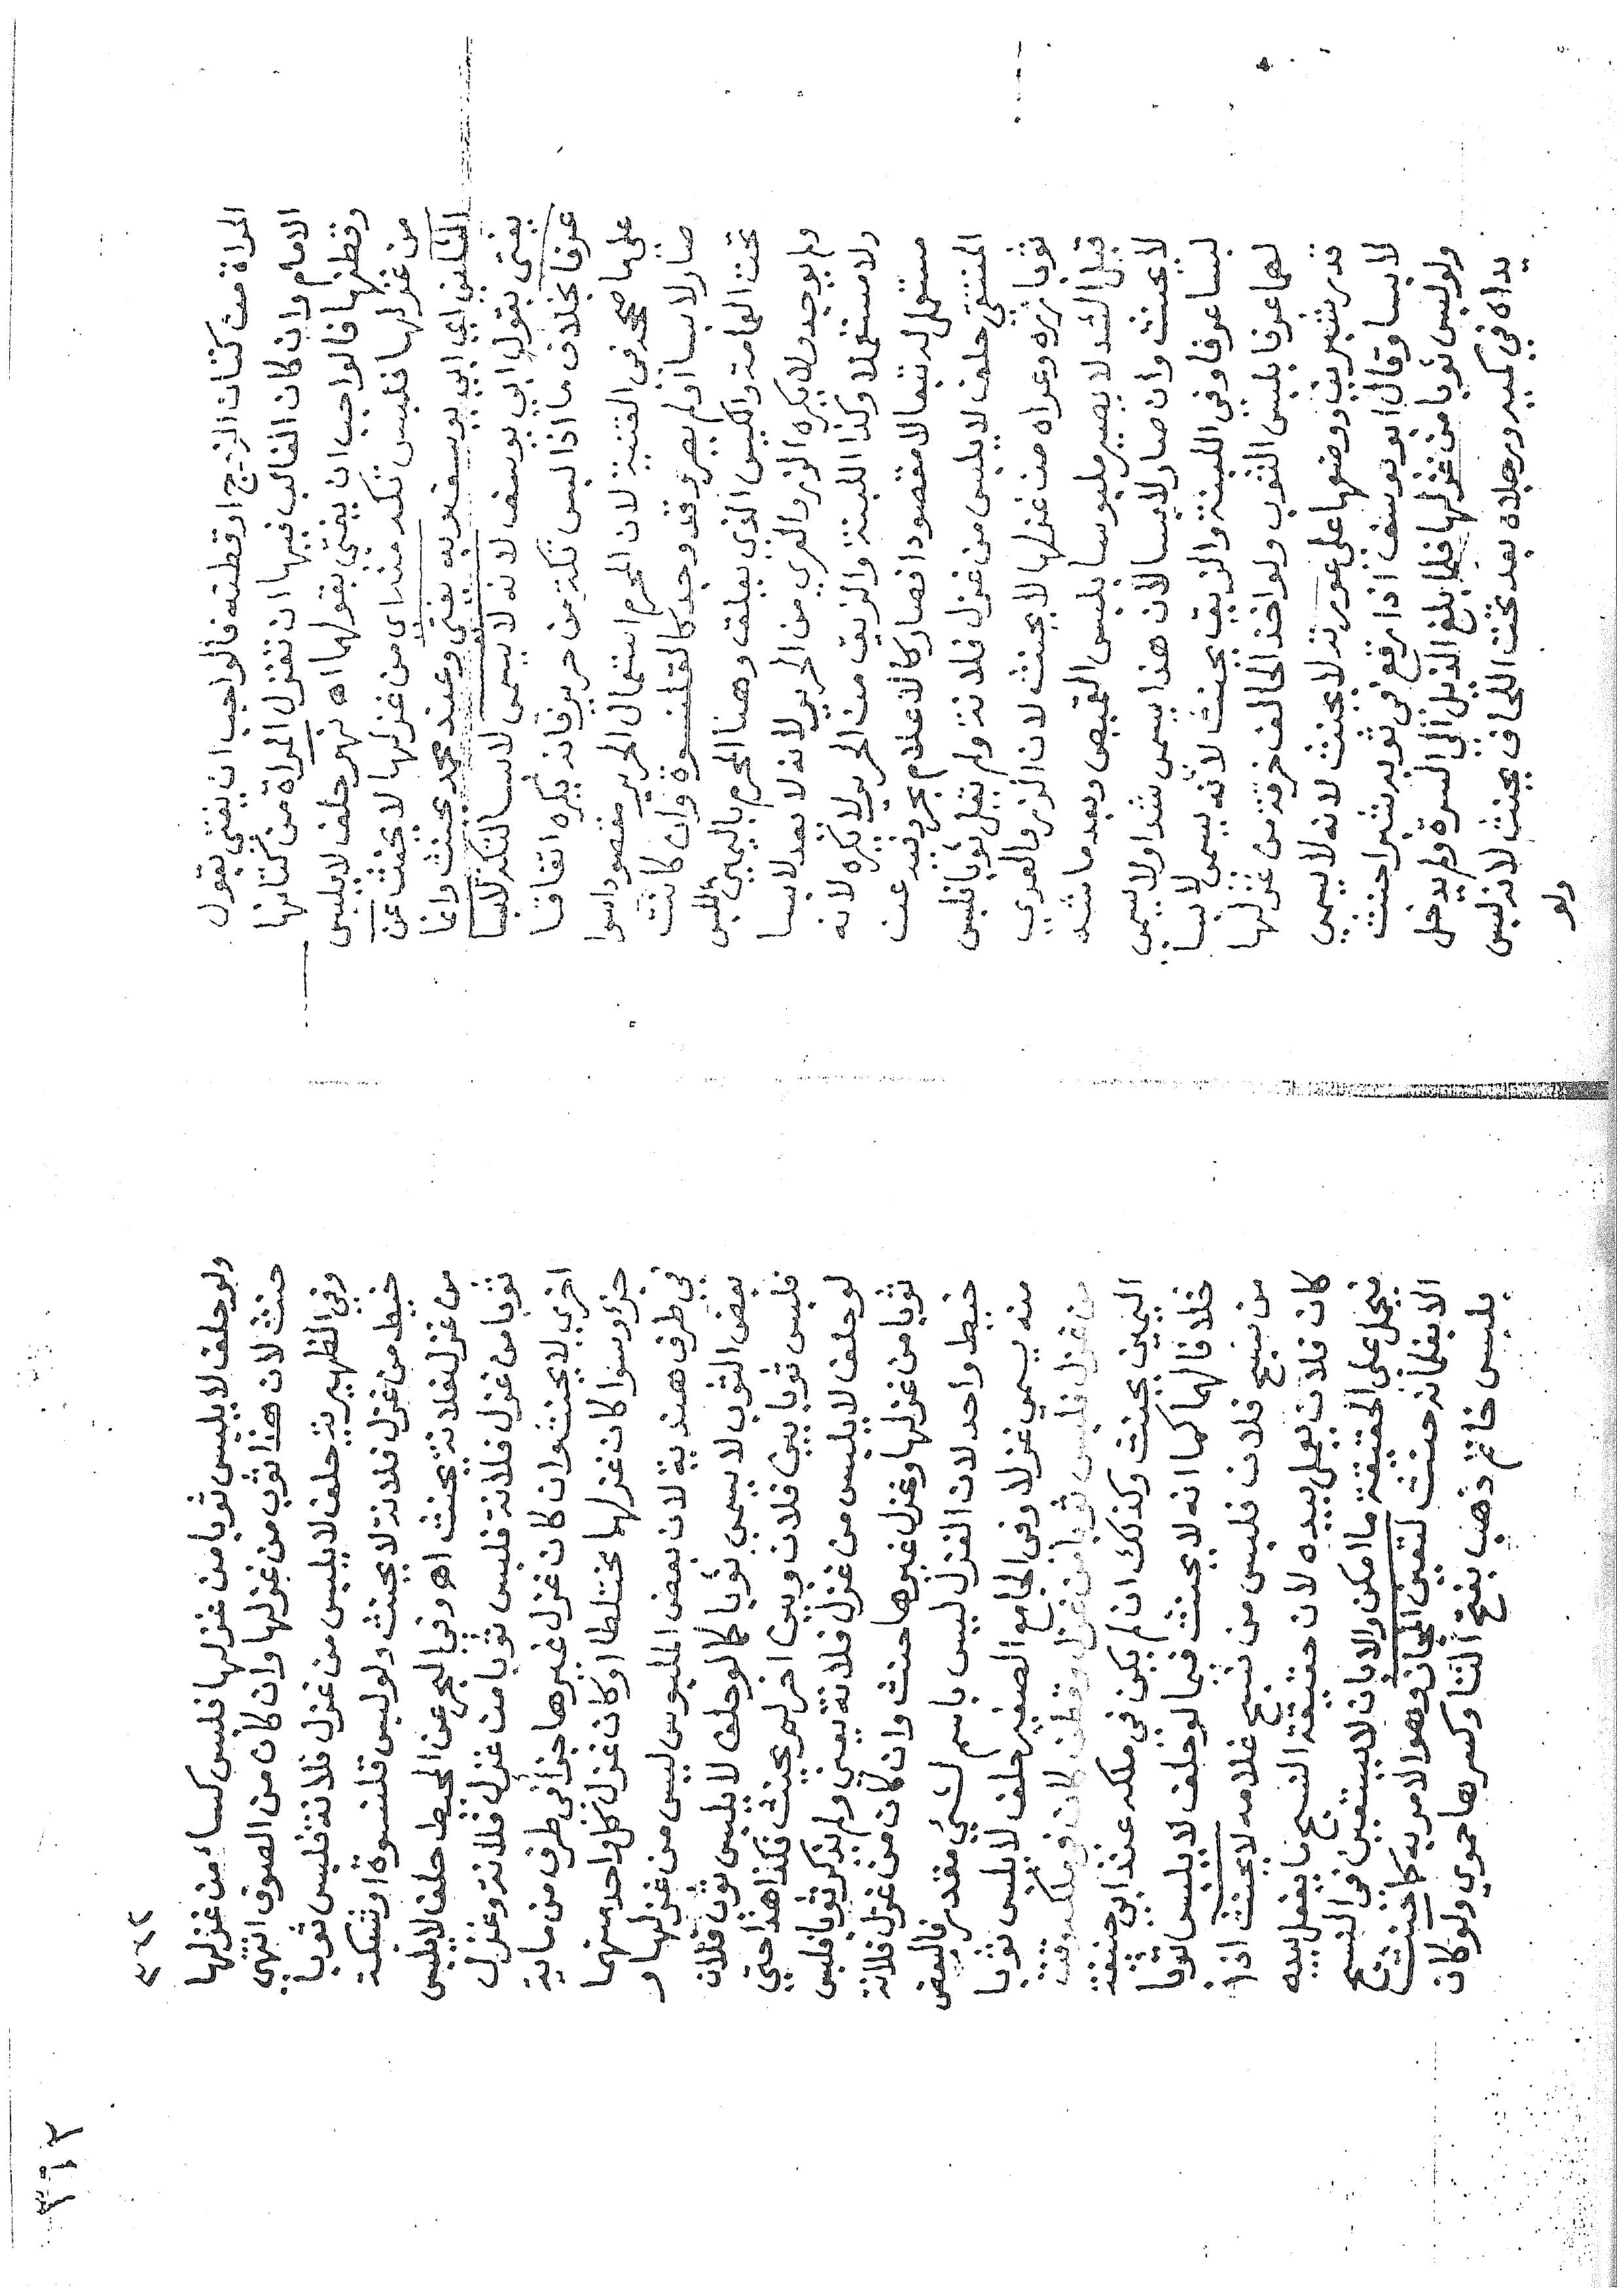 المراة من كتان الزوج او قطنه فالواجب ان يفتي بقول
الامام وان كان الغالب فيها ان تغزل المراة من كتانها
وقطنها فالواجب ان يفتي بقولهما اه نهر حلف لا يلبس
من غزلها فلبس تكه مثداى من غزلها لا يحنث عن
الثاني اي ابي يوسف وبه يفتي وعند محمد يحنث وانما
يفتى بقول ابي يوسف لانه لا يسمى لابسا التكه لابسا
عرفا بخلاف ما اذا لبس تكة من حرير فانه يكره اتفاقا
على ما صححه في القنية لان المحرم استعمال الحرير مقصودا سوا
صار لابسا او لم يصر وقد وجد كالقلنسوة وان كانت
تحت العامة والكيس الذي يعلق وهنا المحرم باليمين اللبس
ولم يوجد ولا يكره الزر والعري من الحرير لانه لا يعد لابسا
ولا مستعملا وكذا اللبنة والزيق من الحرير لا تكره لانه
مستعمل له تبعا لا مقصودا فصار كالاعلام بحر وفيه عن
المنتقي حلف لا يلبس من غزل فلانة ولم يقل ثوبا فلبس
ثوبا زره وعراه من غزلها لا يحنث لان الزر والعري
قبل الشد لا يصير ملبوسا بلبس القميص وبعد ما شد
لا يحنث وان صار لابسا لان هذا يسمى شدا ولا يسمى
لبسا عرفا وفي اللبنة والزيق يحنث لانه يسمى لابسا
لهما عرفا بلبس الثوب ولو اخذ الحالف خرقة من غزلها
قدر شبرين ووضعها على عورته لا يحنث لانه لا يسمى
لابسا وقال ابو يوسف اذا رقع في ثوبه شبرا حنث
ولو لبس ثوبا من غزلها فلما بلغ الذيل الى السرة ولم يدخل
يداه في كميه ورجلاه بعد تحت اللحاف يحنث لانه لبس
ولو
ولو حلف لا يلبس ثوبا من غزلها فلبس كساء من غزلها
حنث لان هذا ثوب من غزلها وان كان من الصوف انتهى
وفي الظهيرية حلف لا يلبس من غزل فلانة فلبس ثوبا
خيط من غزل فلانة لا يحنث ولو لبس قلنسوة او شبكة
من غزل فلانة يحنث اه وفي البحر عن المحيط حلف لا يلبس
ثوبا من غزل فلانة فلبس ثوبا من غزل فلانة وغزل
اخرى لا يحنث وان كان غزل غيرها جزأ في طرف من ماية
جزؤ وسوا كان غزلهما مختلطا او كان غزل كل واحد منهما
في طرف هندية لان بعض الملبوس ليس من غزلها و
بعض الثوب لا يسمى ثوبا كما لو حلف لا يلبس ثوب فلان
فلبس ثوبا بين فلان وبين اخر لم يحنث فكذا هذا حتي
لو حلف لا يلبس من غزل فلانة يعني ولم يذكر ثوبا فلبس
ثوبا من غزلها وغزل غيرها حنث وان كان من غزل فلانة
خيط واحد لان الغزل ليس باسم لشيء مقدر فالبعض
منه يسمى غزلا وفي الجامع الصغير حلف لا يلبس ثوبا
من غزل فلبس ثوبا من غزل وقطن كان في ملكه وقت
اليمين يحنث وكذلك ان لم يكن في ملكه عند ابي حنيفة
خلافا لهما كما انه لا يحنث فيما لو حلف لا يلبس ثوبا
من نسج فلان فلبس من نسج غلامه لا يحنث اذا
كان فلان يعمل بيده لان حقيقة النسج ما يفعل بيده
فيحمل على الحقيقة ما امكن والا بان لا يستعين في النسج
الا بغلمانه حنث لتعين المجاز وهو الامر به كما حنث
بلبس خاتم ذهب بفتح التا وكسرها حموي ولو كان
٢٦٢